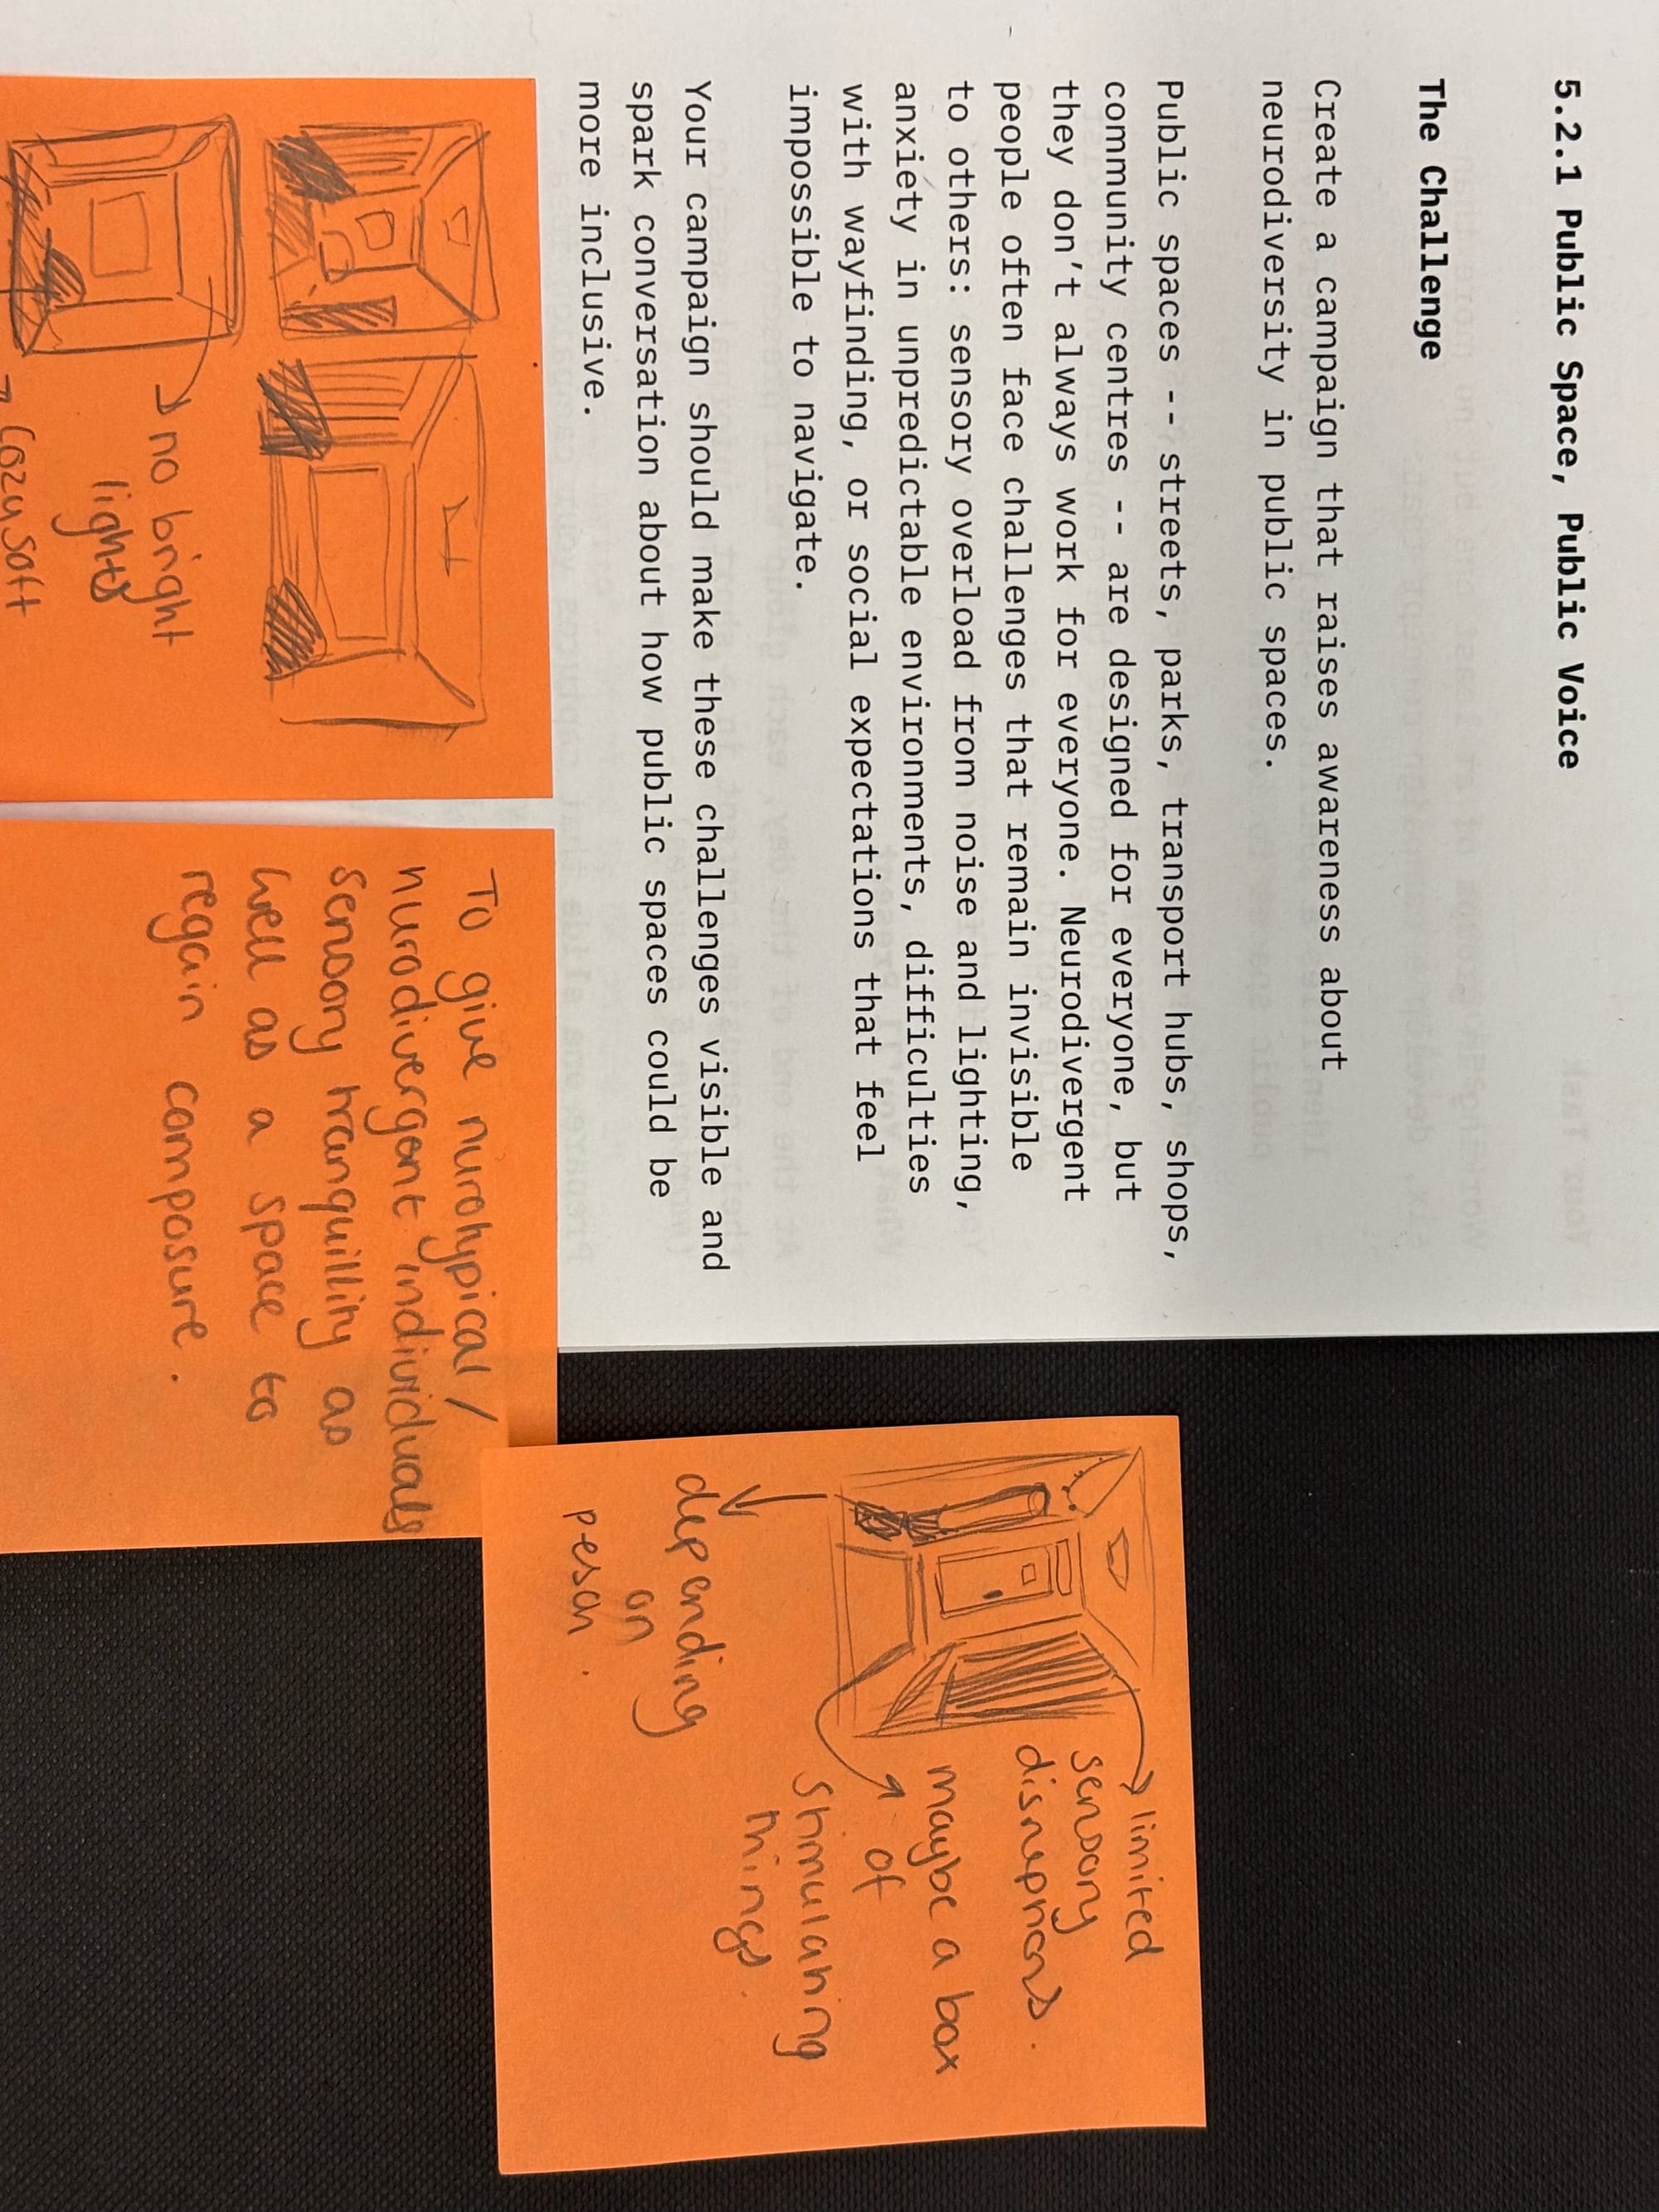 5.2.1 Public Space, Public Voice
The Challenge
Create a campaign that raises awareness about
neurodiversity in public spaces.
Public spaces -- streets, parks, transport hubs, shops,
community centres -- are designed for everyone, but
they don't always work for everyone. Neurodivergent
people often face challenges that remain invisible
to others: sensory overload from noise and lighting,
anxiety in unpredictable environments, difficulties
with wayfinding, or social expectations that feel
impossible to navigate.
Your campaign should make these challenges visible and
spark conversation about how public spaces could be
more inclusive.
no bright
lights
cozy soft
To give nurotypical /
nurodivergent individuals
sensory tranquillity as
well as a space to
regain composure.
limited
sensory
disruptions.
maybe a box
of
stimulating
things.
depending
on
peson.